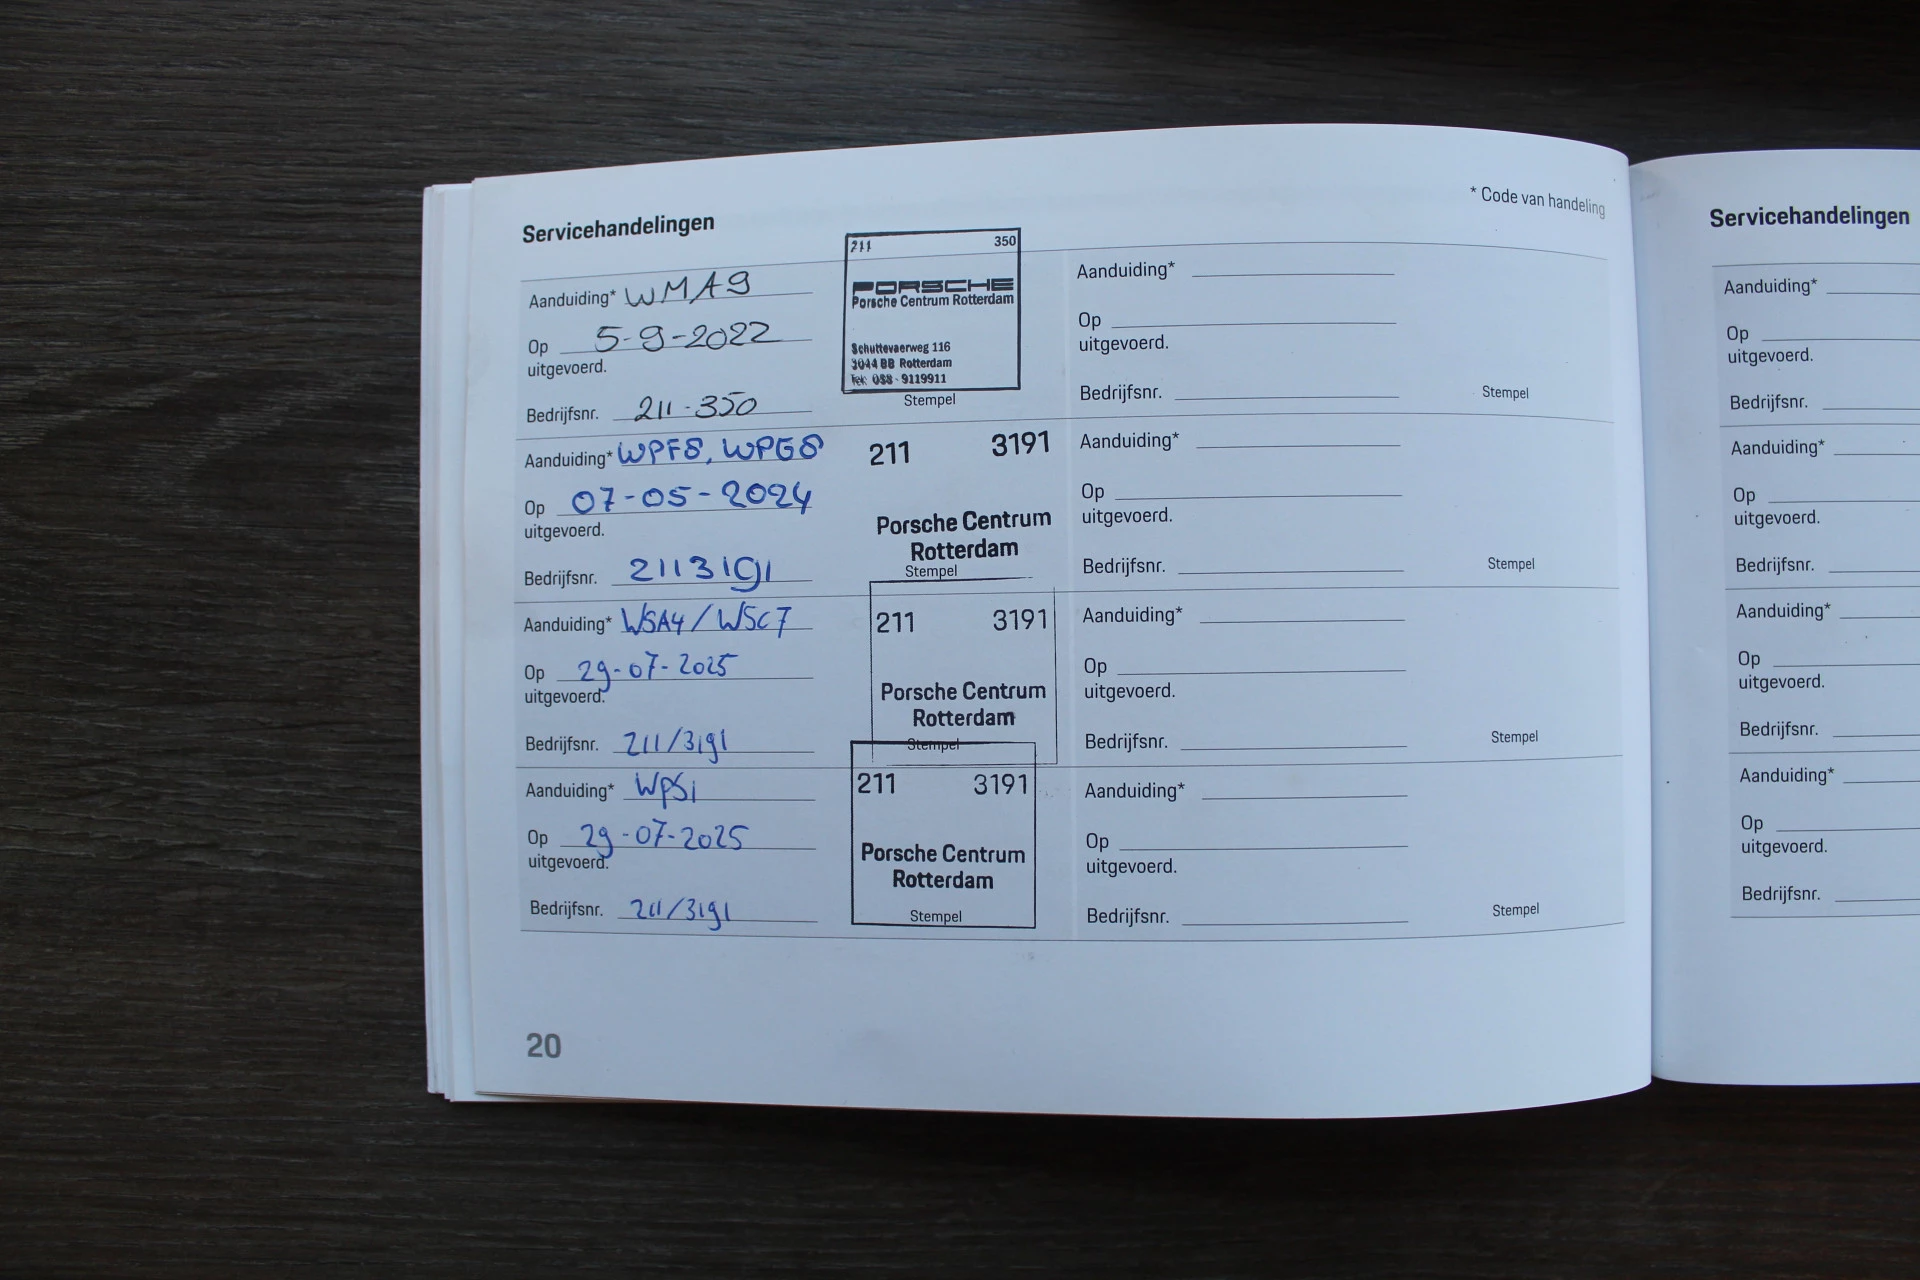 Servicehandelingen
* Code van handeling
Aanduiding* WMA9
Op 5-9-2022
uitgevoerd.
Bedrijfsnr. 211-350
211 350
PORSCHE
Porsche Centrum Rotterdam
Schuttevaerweg 116
3044 BB Rotterdam
Tel: 088 - 9119911
Stempel
Aanduiding* WPF8, WPG8
Op 07-05-2024
uitgevoerd.
Bedrijfsnr. 2113191
211 3191
Porsche Centrum
Rotterdam
Stempel
Aanduiding* WSA4 / WSC7
Op 29-07-2025
uitgevoerd.
Bedrijfsnr. 211/3191
211 3191
Porsche Centrum
Rotterdam
Stempel
Aanduiding* WPSi
Op 29-07-2025
uitgevoerd.
Bedrijfsnr. 211/3191
211 3191
Porsche Centrum
Rotterdam
Stempel
Aanduiding*
Op
uitgevoerd.
Bedrijfsnr.
Stempel
Aanduiding*
Op
uitgevoerd.
Bedrijfsnr.
Stempel
Aanduiding*
Op
uitgevoerd.
Bedrijfsnr.
Stempel
Aanduiding*
Op
uitgevoerd.
Bedrijfsnr.
Stempel
20
Servicehandelingen
Aanduiding*
Op
uitgevoerd.
Bedrijfsnr.
Aanduiding*
Op
uitgevoerd.
Bedrijfsnr.
Aanduiding*
Op
uitgevoerd.
Bedrijfsnr.
Aanduiding*
Op
uitgevoerd.
Bedrijfsnr.